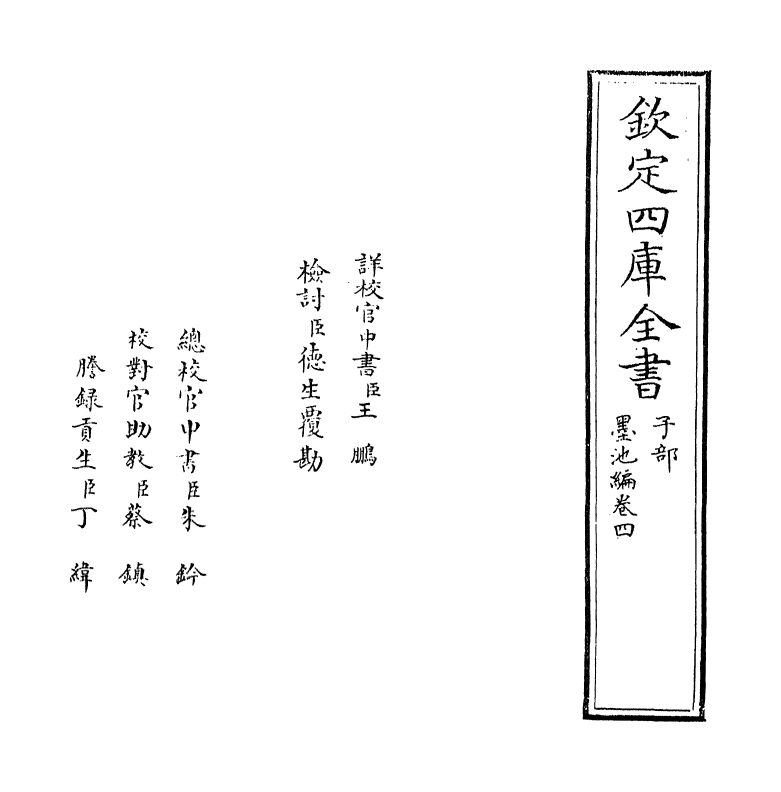 欽定四庫全書
子部
墨池編卷四
詳校官中書臣王鵬
檢討臣德生覆勘
總校官中書臣朱鈐
校對官助教臣蔡鎮
謄錄貢生臣丁緯